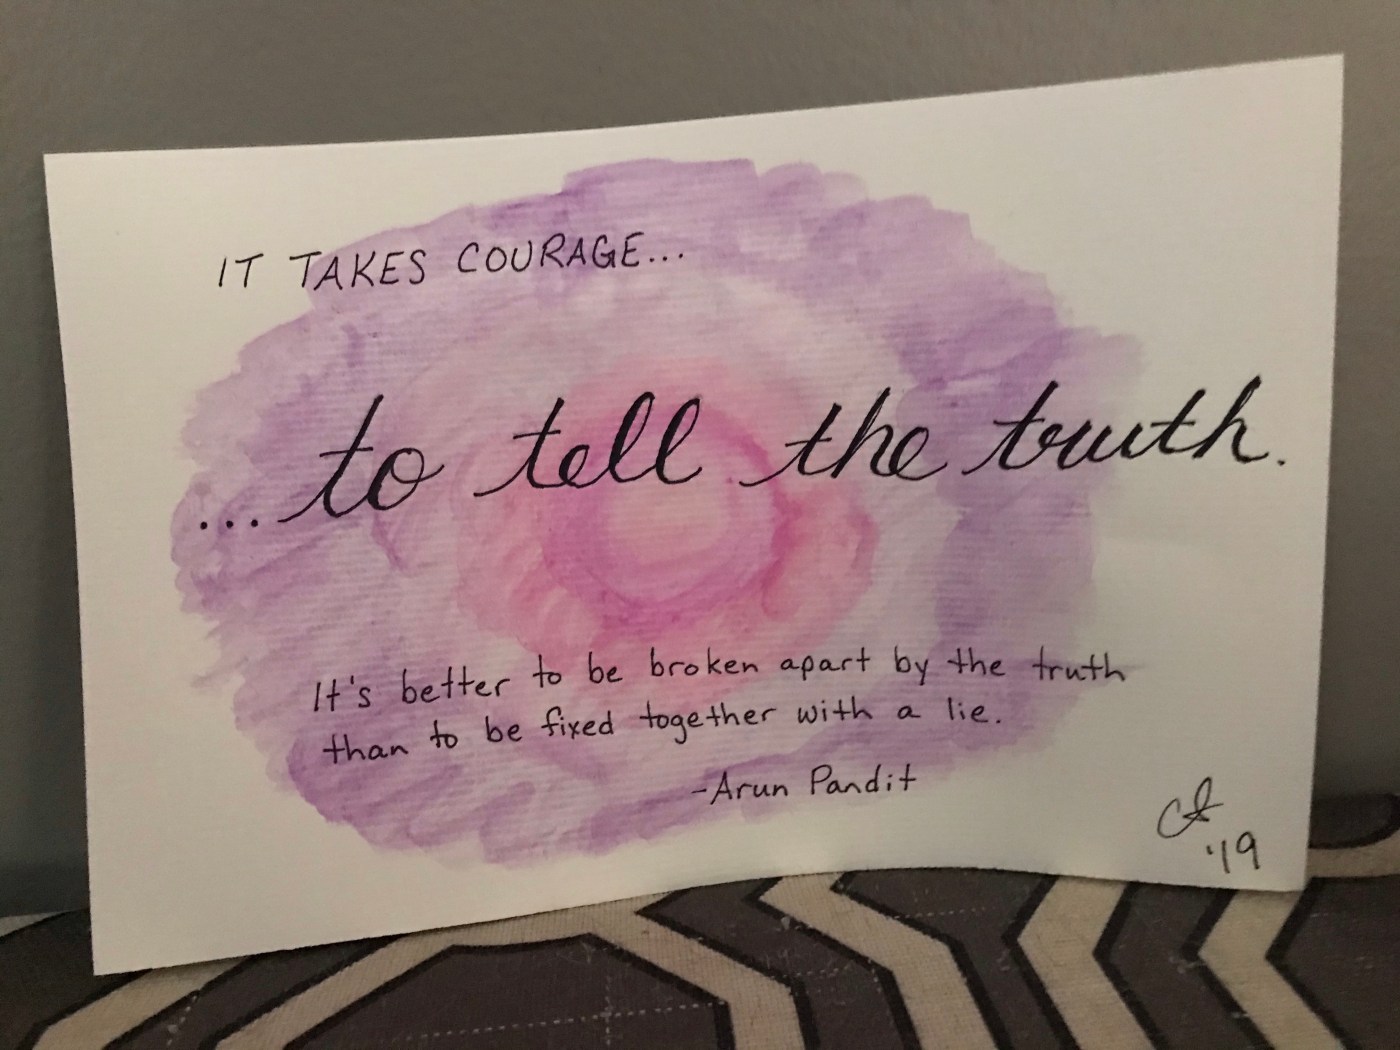 IT TAKES COURAGE...
...to tell the truth.
It's better to be broken apart by the truth
than to be fixed together with a lie.
-Arun Pandit
'19